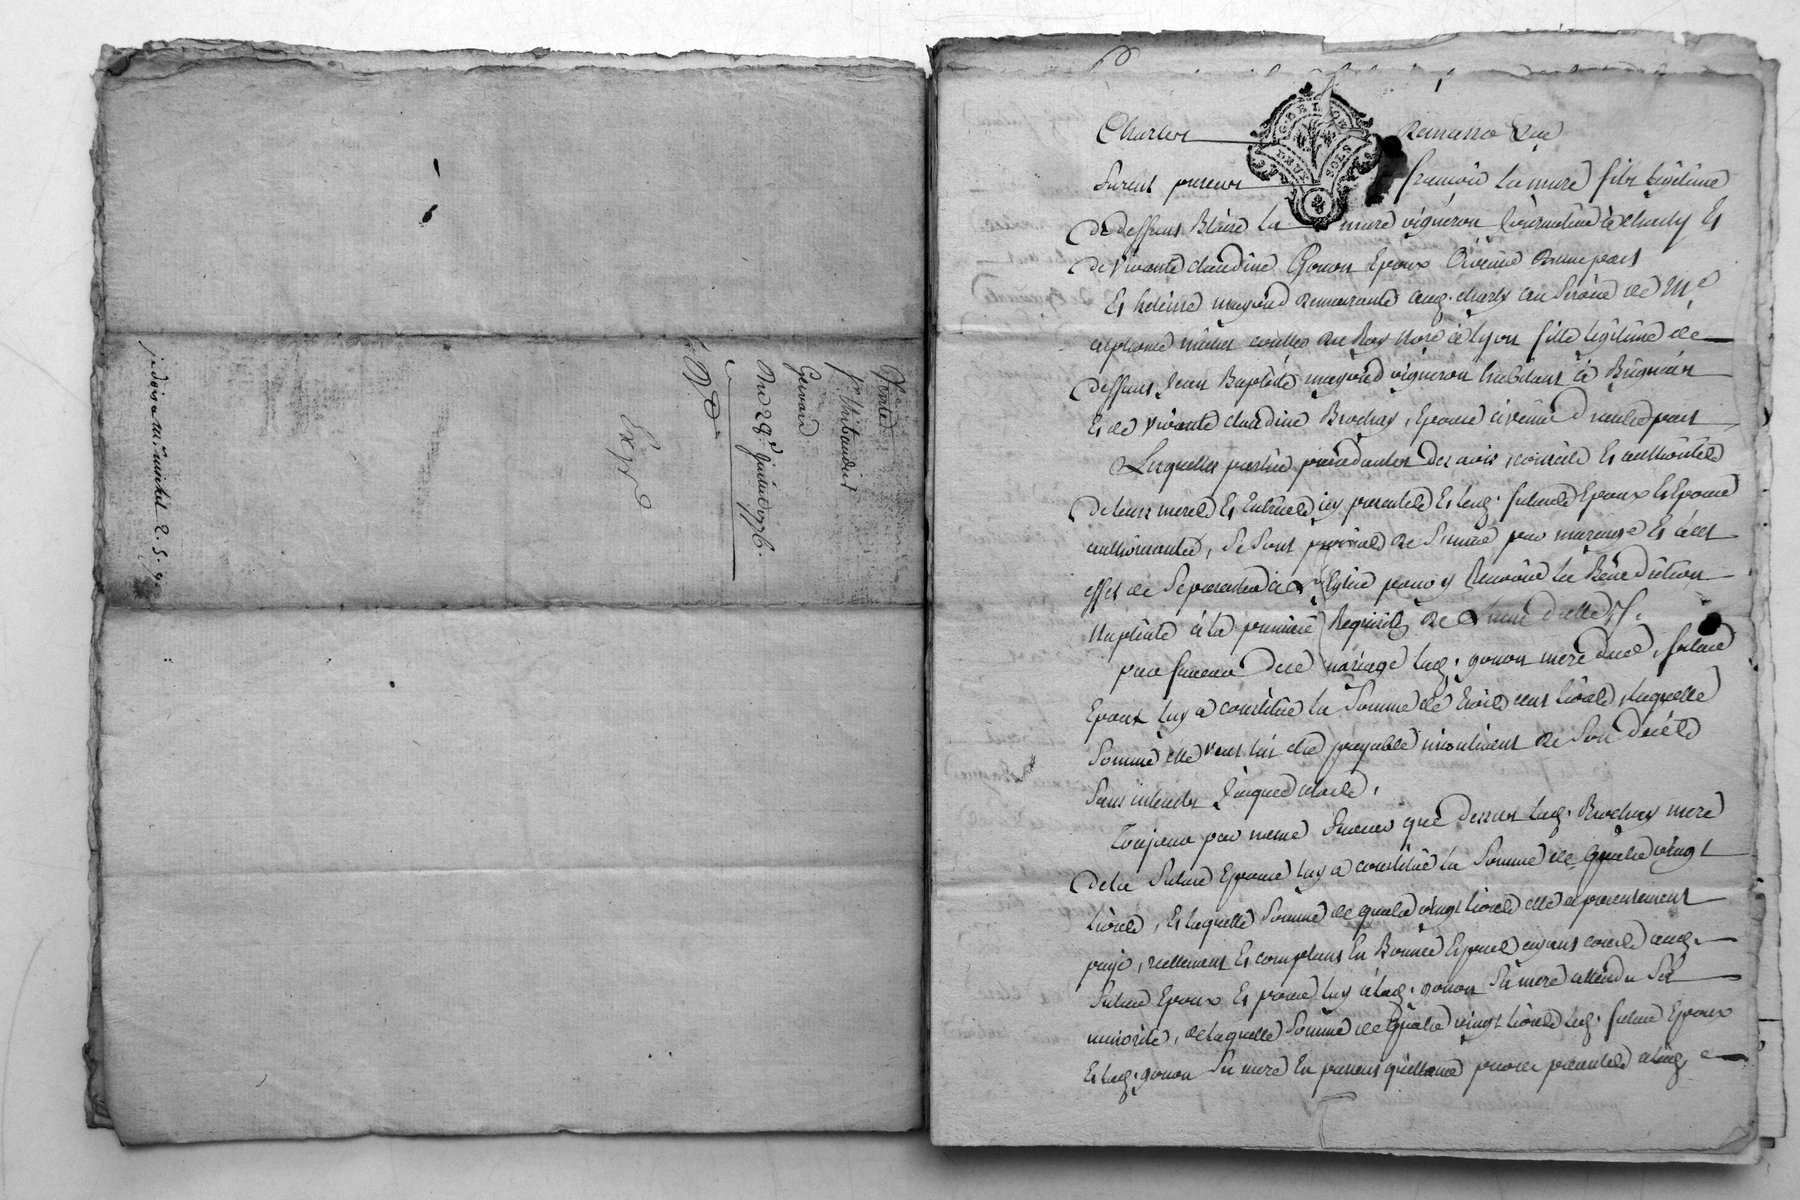 Vente
pr thibaudier
Gervais
Du 29e juin 1776.
Exp
GE LYON
DEUX SOLS
Charles
furent presents francois La mure fils legitime
de deffunt Blaise La mure vigneron journalier à charly Et
de vivante claudine Gonon Epoux avenir d'une part
Et helaine mayoud demeurante aud. charly au service de Me
fille legitime de
deffunt Jean Baptiste mayoud vigneron habitant à Brignais
Et de vivante claudine Brochay, Epouse avenir d'autre part
Lesquelles parties procedantes des avis, conseils Et authorité
de leurs meres Et icy presentes Et lesd. futurs Epoux Et Epouse
authorisantes, se sont promis de s'unir par mariage Et à cet
effet de se presenter à Ste Eglise pour y Recevoir La Bénédiction
Nuptiale à la premiere Requisition de L'une d'elles
pour faveur dud. mariage lad. gonon mere dud. futur
Epoux luy a constitué la Somme de trois cent livres, laquelle
Somme elle veut lui etre payable incontinent de Son décès
Sans interets jusqu'alors.
Toujours par meme faveur que dessus lad. Brochay mere
de la future Epouse luy a constitué la Somme de quatre vingt
livres, Et laquelle Somme de quatre vingt livres elle a presentement
payé, reellement Et comptant En Bonnes Especes ayant cours aud.
futur Epoux Et pour luy à lad. gonon Sa mere attendu Sa
minorité, de laquelle Somme de quatre vingt livres led. futur Epoux
Et lad. gonon Sa mere En passent quittance